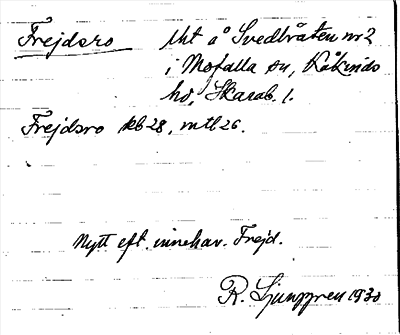 Frejdsro lht å Svedbråten nr 2
i Mofalla sn, Kåkinds
hd, Skarab. l.
Frejdsro kb 28, mtl 26.
Nytt eft. innehav. Frejd.
R. Ljunggren 1930